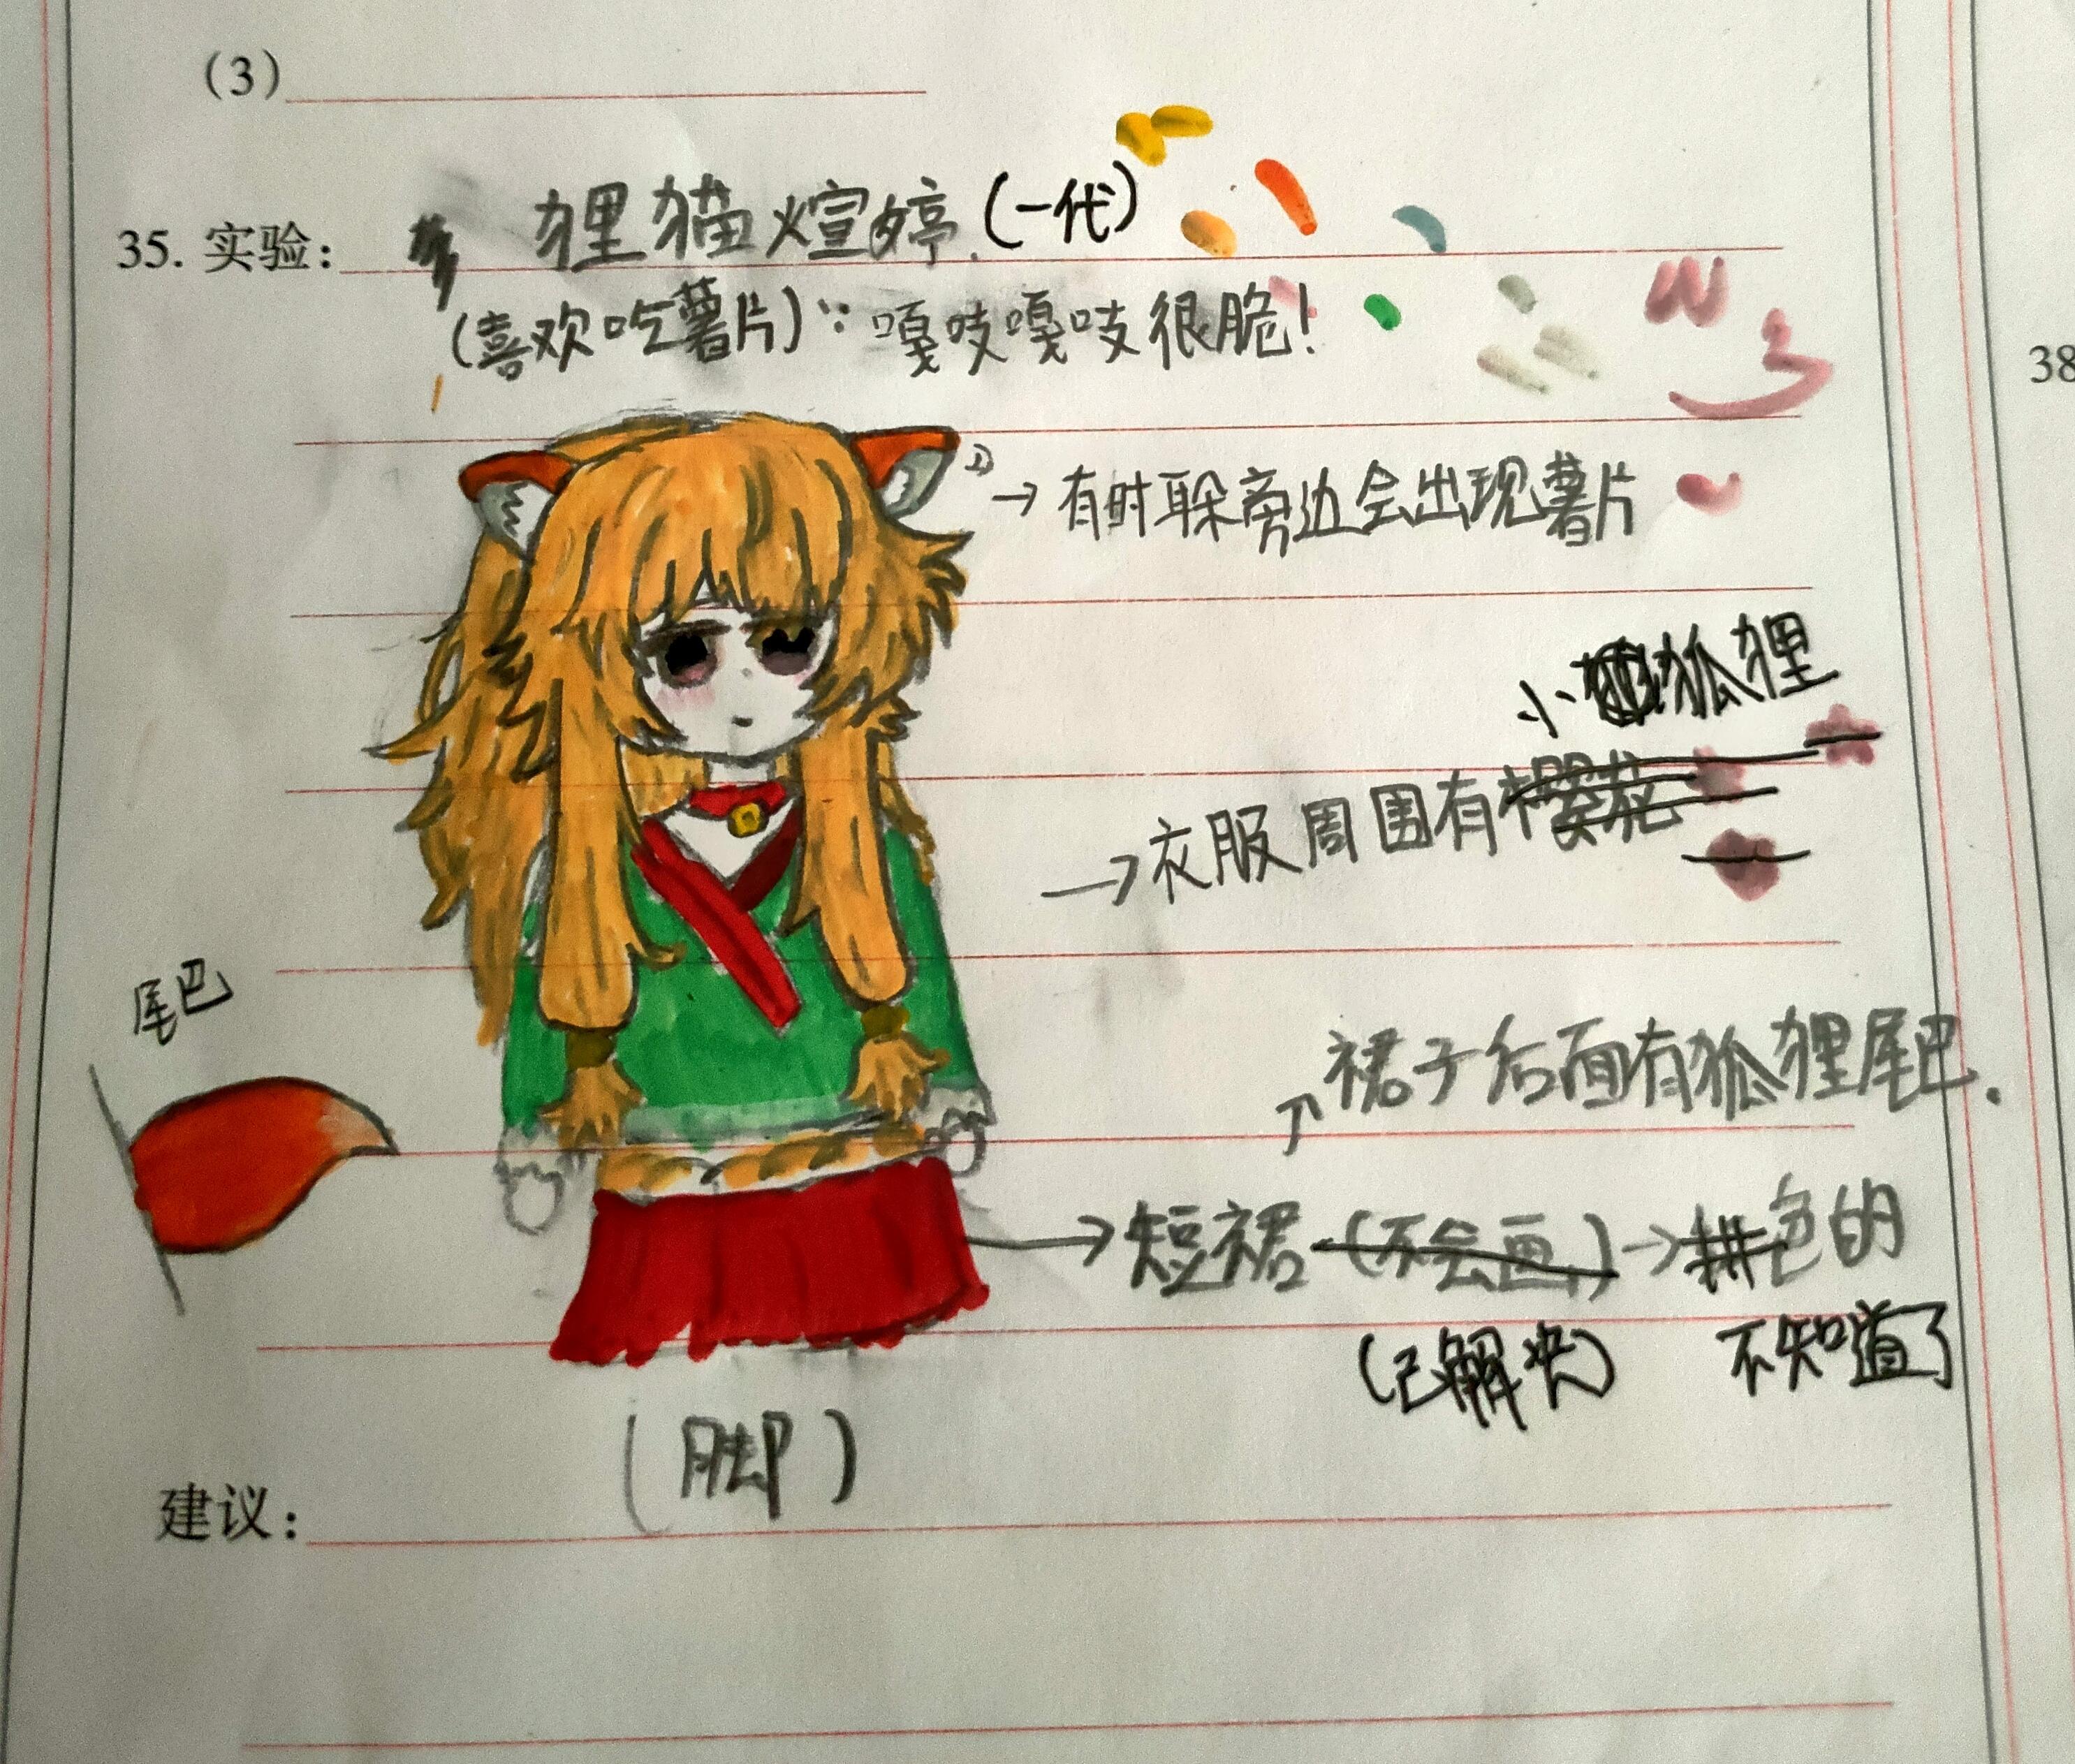 (3)
35. 实验: 狸猫煊婷 (一代)
(喜欢吃薯片): 嘎吱嘎吱很脆!
→ 有时耳朵旁边会出现薯片
小狐狸
→ 衣服周围有樱花
尾巴
裙子后面有狐狸尾巴.
→ 短裙 (不会画) → 拼色的
(已解决) 不知道了
(脚)
建议:
38